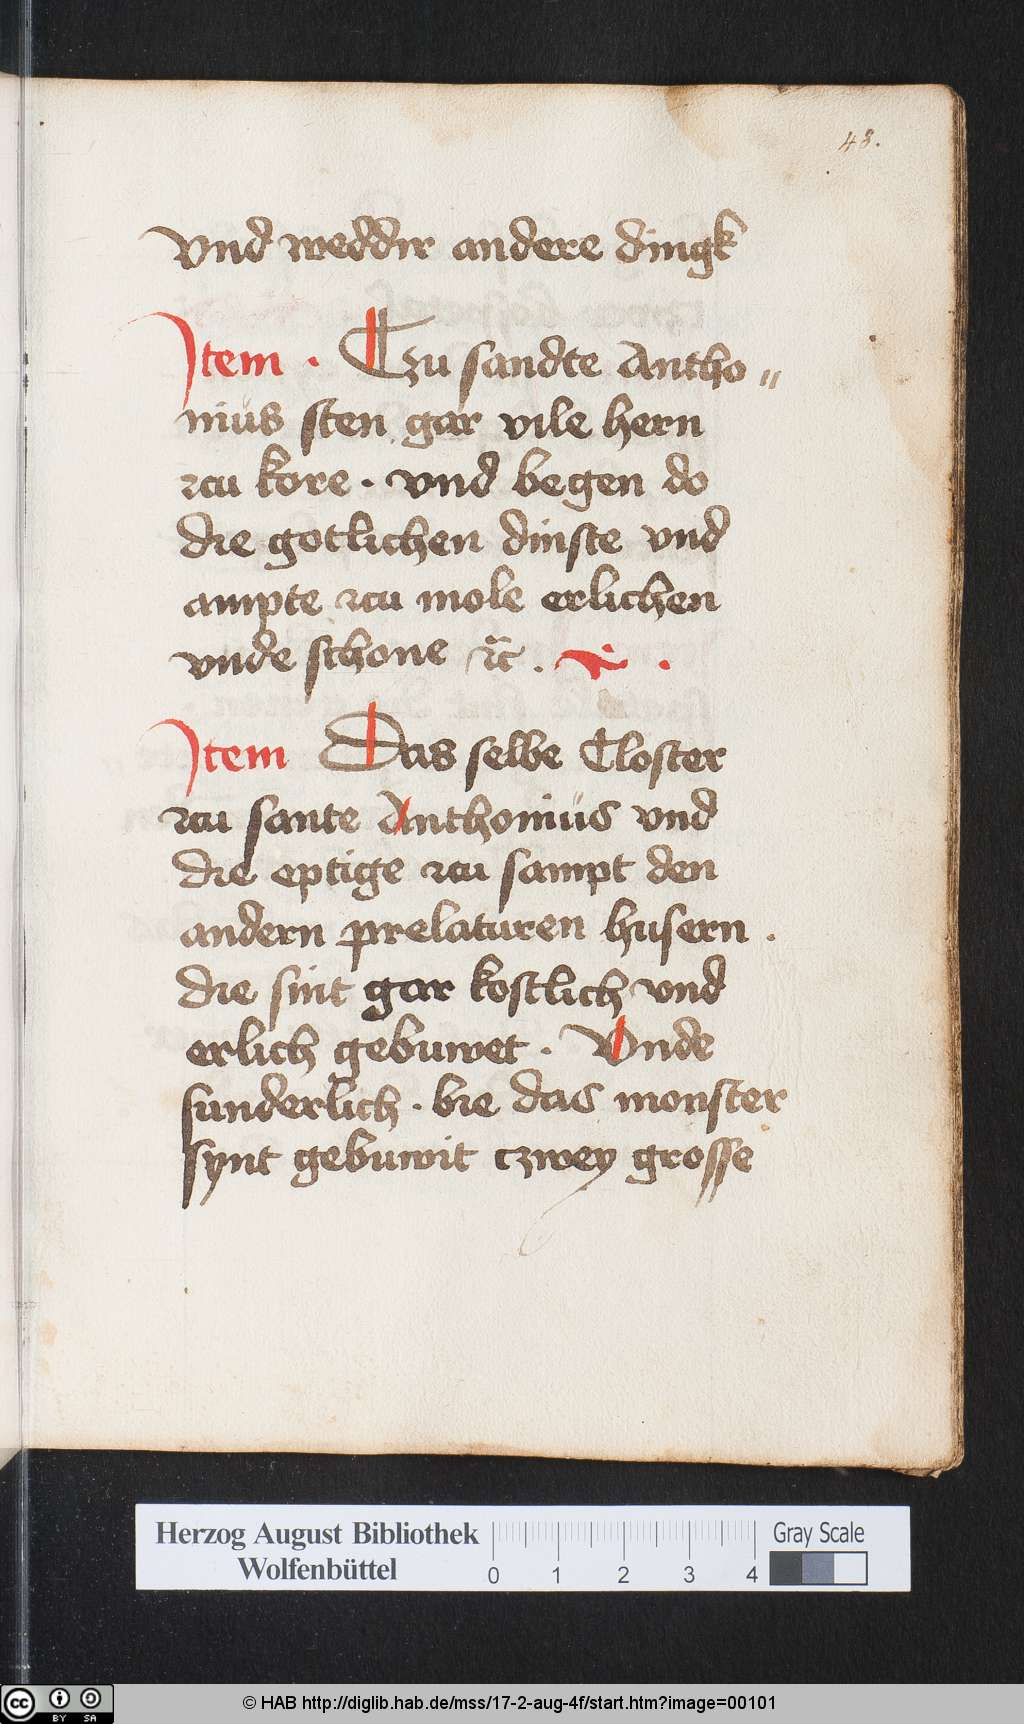 48.
vnd weddir andere dingk
Item · Czu sandte Antho„
nius sten gar vile hern
zcu kore · vnd begen do
die gotlichen dinste vnd
ampte zcu mole erlichen
vnde schone ⁊c̃ .
Item Das selbe Closter
zcu sante Anthonius vnd
die eptige zcu sampt den
andern prelaturen husern .
die sint gar kostlich vnd
erlich gebuwet · Vnde
sunderlich · bie das monster
synt gebuwit czwey grosse
Herzog August Bibliothek
Wolfenbüttel
0 1 2 3 4
Gray Scale
cc BY SA
© HAB http://diglib.hab.de/mss/17-2-aug-4f/start.htm?image=00101